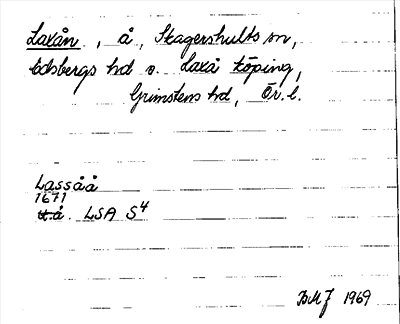 Laxån, å, Skagershults sn,
Edsbergs hd o. Laxå köping,
Grimstens hd, Ör. l.
Lassåå
1671
u.å. LSA S4
BMJ 1969